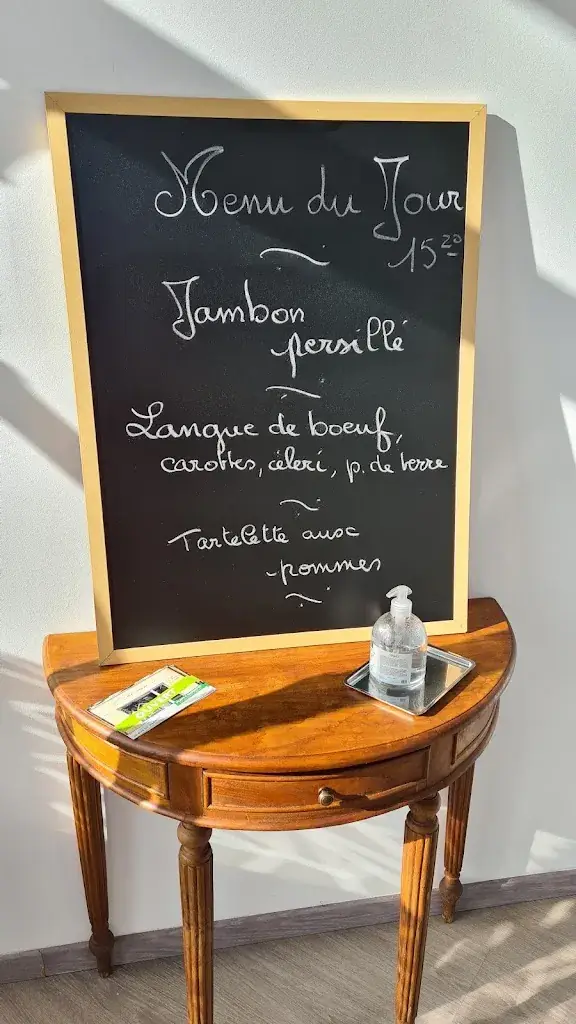 Menu du Jour
15 20
Jambon
persillé
Langue de boeuf,
carottes, céleri, p. de terre
Tartelette aux
pommes